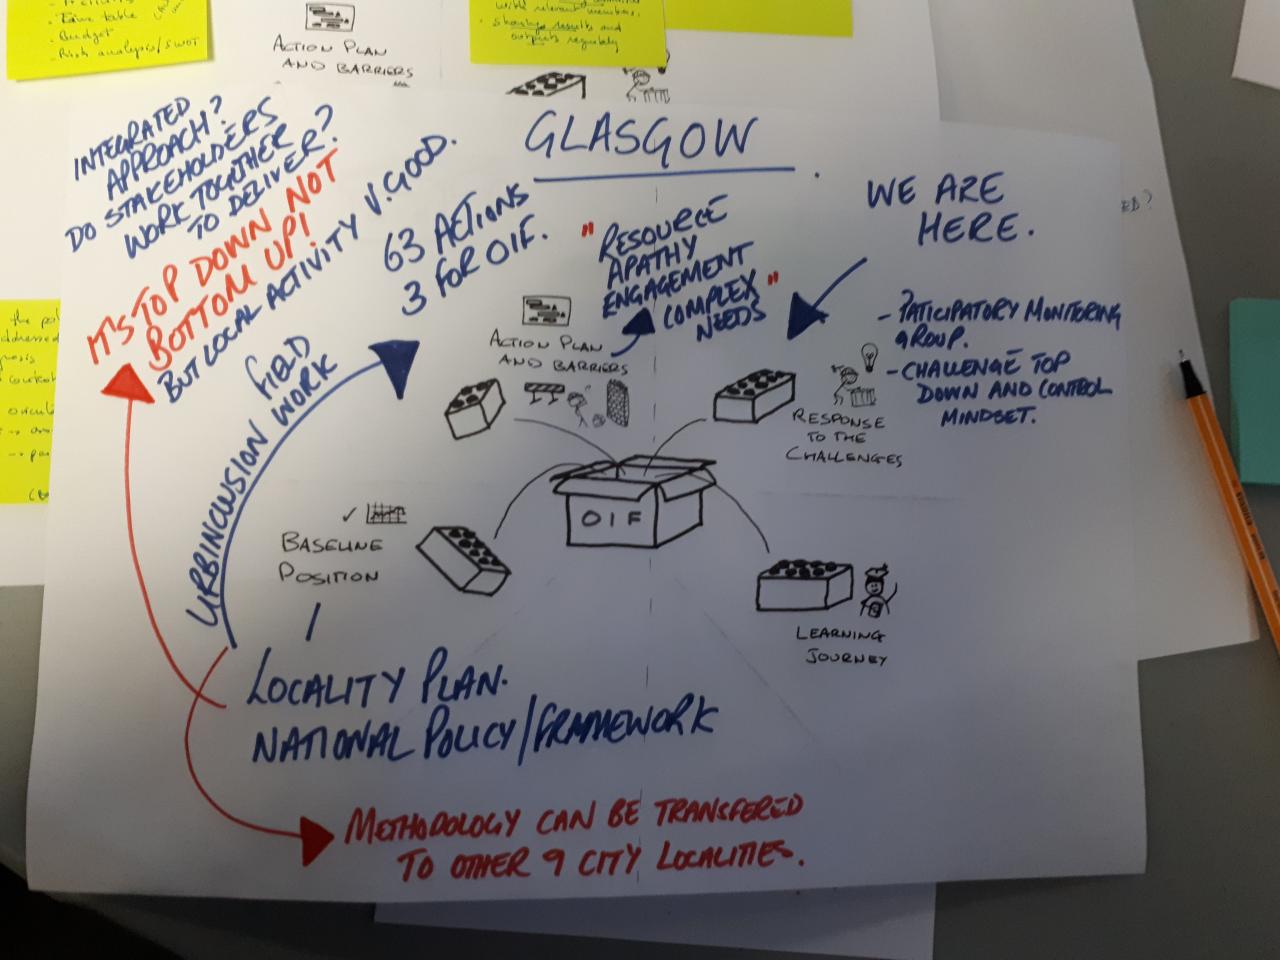 Time table
- Budget
- Risk analysis/SWOT
ACTION PLAN
AND BARRIERS
with relevant members.
- Sharing results and
outputs regularly
GLASGOW
INTEGRATED
APPROACH?
DO STAKEHOLDERS
WORK TOGETHER
TO DELIVER?
IT'S TOP DOWN NOT
BOTTOM UP!
BUT LOCAL ACTIVITY V. GOOD.
63 ACTIONS
3 FOR OIF.
"RESOURCE
APATHY
ENGAGEMENT
COMPLEX
NEEDS"
WE ARE
HERE.
- PATICIPATORY MONITORING
GROUP.
- CHALLENGE TOP
DOWN AND CONTROL
MINDSET.
ACTION PLAN
AND BARRIERS
RESPONSE
TO THE
CHALLENGES
URBINCUSION FIELD
WORK
OIF
✓
BASELINE
POSITION
LEARNING
JOURNEY
LOCALITY PLAN.
NATIONAL POLICY/FRAMEWORK
METHODOLOGY CAN BE TRANSFERED
TO OTHER 9 CITY LOCALITIES.
the pol